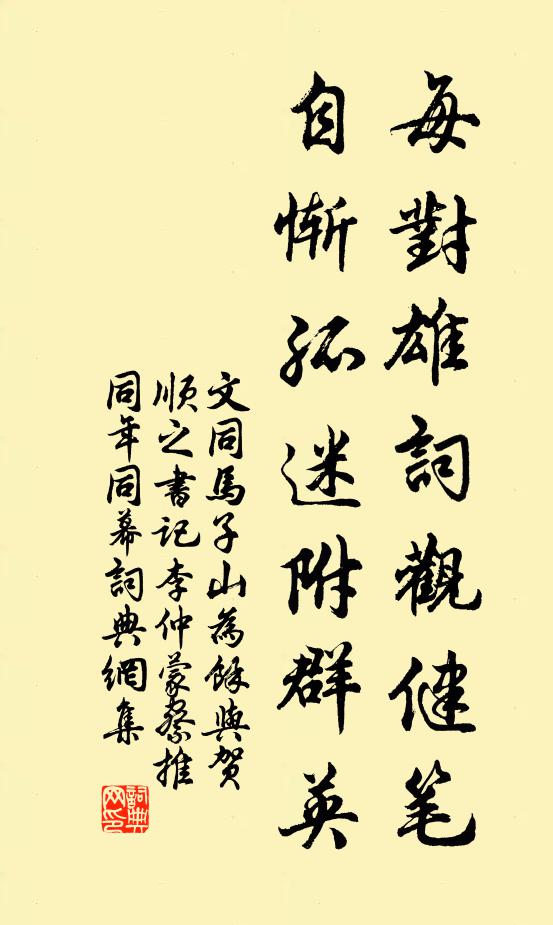 每對雄詞觀健笔
自慚孤迷附群英
文同馬子山為餘與賀
順之書记李仲蒙察推
同年同幕詞典網集
詞典
网印